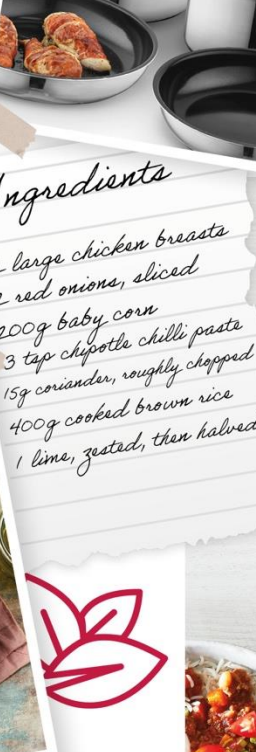 Ingredients
large chicken breasts
red onions, sliced
200g baby corn
3 tsp chipotle chilli paste
15g coriander, roughly chopped
400g cooked brown rice
1 lime, zested, then halved